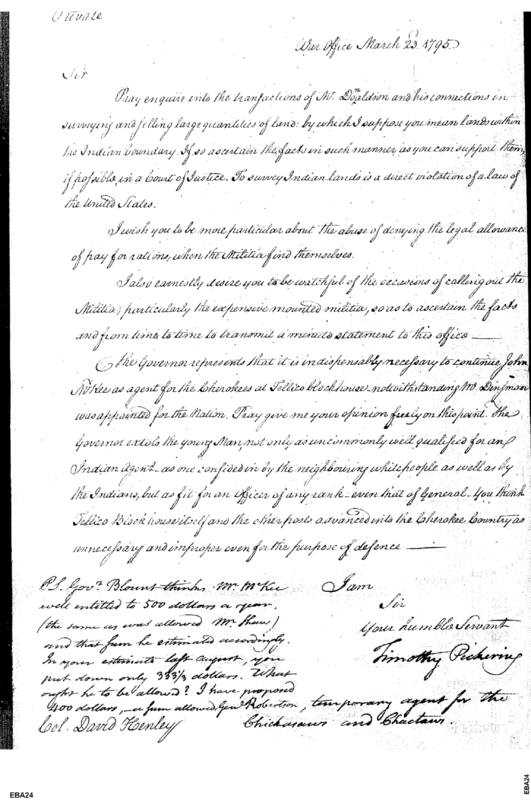 Private
War Office March 23d 1795.
Sir
Pray enquire into the transactions of Mr. Donaldson and his connections in
surveying and selling large quantities of land: by which I suppose you mean lands within
the Indian boundary. If so ascertain the facts in such manner as you can support them,
if possible, in a Court of Justice. To survey Indian lands is a direct violation of a law of
the United States.
I wish you to be more particular about the abuse of denying the legal allowance
of pay for rations, when the Militia find themselves.
I also earnestly desire you to be watchful of the occasions of calling out the
Militia; particularly the expensive mounted militia, so as to ascertain the facts
and from time to time to transmit a minute statement to this office —
The Governor represents that it is indispensably necessary to continue John
McKee as agent for the Cherokees at Tellico blockhouse, notwithstanding Mr. Dinsmoor
was appointed for the Nation. Pray give me your opinion freely on this point. The
Governor extols the young Man, not only as uncommonly well qualified for an
Indian Agent – as one confided in by the neighbouring white people as well as by
the Indians, but as fit for an Officer of any rank – even that of General – You think
Tellico Block house itself and the other posts advanced into the Cherokee Country as
unnecessary and improper even for the purpose of defence —
I am
Sir
Your humble Servant
Timothy Pickering
P.S. Govr. Blount thinks Mr. McKee
well entitled to 500 dollars a year.
(the same as was allowed Mr. Shaw)
and that sum he estimated accordingly.
In your estimate last august, you
put down only 333 1/3 dollars. What
ought he to be allowed? I have proposed
400 dollars, – a sum allowed Genl Robertson, temporary agent for the
Chickasaws and Chactaws.
Col. David Henley
EBA24
EBA24